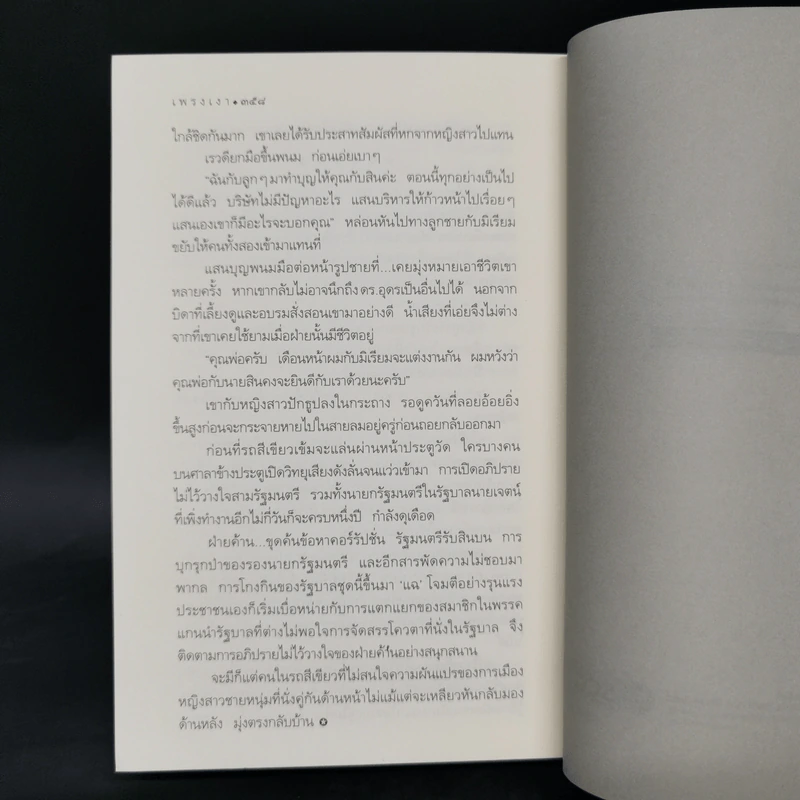 เพรงเงา●๓๕๔
ใกล้ชิดกันมาก เขาเลยได้รับประสาทสัมผัสที่หกจากหญิงสาวไปแทน
เรวดียกมือขึ้นพนม ก่อนเอ่ยเบาๆ
“ฉันกับลูกๆ มาทำบุญให้คุณกับสินค่ะ ตอนนี้ทุกอย่างเป็นไป
ได้ดีแล้ว บริษัทไม่มีปัญหาอะไร แสนบริหารให้ก้าวหน้าไปเรื่อยๆ
แสนเองเขาก็มีอะไรจะบอกคุณ” หล่อนหันไปทางลูกชายกับมิเรียม
ขยับให้คนทั้งสองเข้ามาแทนที่
แสนบุญพนมมือต่อหน้ารูปชายที่...เคยมุ่งหมายเอาชีวิตเขา
หลายครั้ง หากเขากลับไม่อาจนึกถึง ดร.อุดรเป็นอื่นไปได้ นอกจาก
บิดาที่เลี้ยงดูและอบรมสั่งสอนเขามาอย่างดี น้ำเสียงที่เอ่ยจึงไม่ต่าง
จากที่เขาเคยใช้ยามเมื่อฝ่ายนั้นมีชีวิตอยู่
“คุณพ่อครับ เดือนหน้าผมกับมิเรียมจะแต่งงานกัน ผมหวังว่า
คุณพ่อกับนายสินคงจะยินดีกับเราด้วยนะครับ”
เขากับหญิงสาวปักธูปลงในกระถาง รอดูควันที่ลอยอ้อยอิ่ง
ขึ้นสูงก่อนจะกระจายหายไปในสายลมอยู่ครู่ก่อนถอยกลับออกมา
ก่อนที่รถสีเขียวเข้มจะแล่นผ่านหน้าประตูวัด ใครบางคน
บนศาลาข้างประตูเปิดวิทยุเสียงดังลั่นจนแว่วเข้ามา การเปิดอภิปราย
ไม่ไว้วางใจสามรัฐมนตรี รวมทั้งนายกรัฐมนตรีในรัฐบาลนายเจตน์
ที่เพิ่งทำงานอีกไม่กี่วันก็จะครบหนึ่งปี กำลังดุเดือด
ฝ่ายค้าน...ขุดค้นข้อหาคอร์รัปชั่น รัฐมนตรีรับสินบน การ
บุกรุกป่าของรองนายกรัฐมนตรี และอีกสารพัดความไม่ชอบมา
พากล การโกงกินของรัฐบาลชุดนี้ขึ้นมา ‘แฉ’ โจมตีอย่างรุนแรง
ประชาชนเองก็เริ่มเบื่อหน่ายกับการแตกแยกของสมาชิกในพรรค
แกนนำรัฐบาลที่ต่างไม่พอใจการจัดสรรโควตาที่นั่งในรัฐบาล จึง
ติดตามการอภิปรายไม่ไว้วางใจของฝ่ายค้านอย่างสนุกสนาน
จะมีก็แต่คนในรถสีเขียวที่ไม่สนใจความผันแปรของการเมือง
หญิงสาวชายหนุ่มที่นั่งคู่กันด้านหน้าไม่แม้แต่จะเหลียวหันกลับมอง
ด้านหลัง มุ่งตรงกลับบ้าน ✪